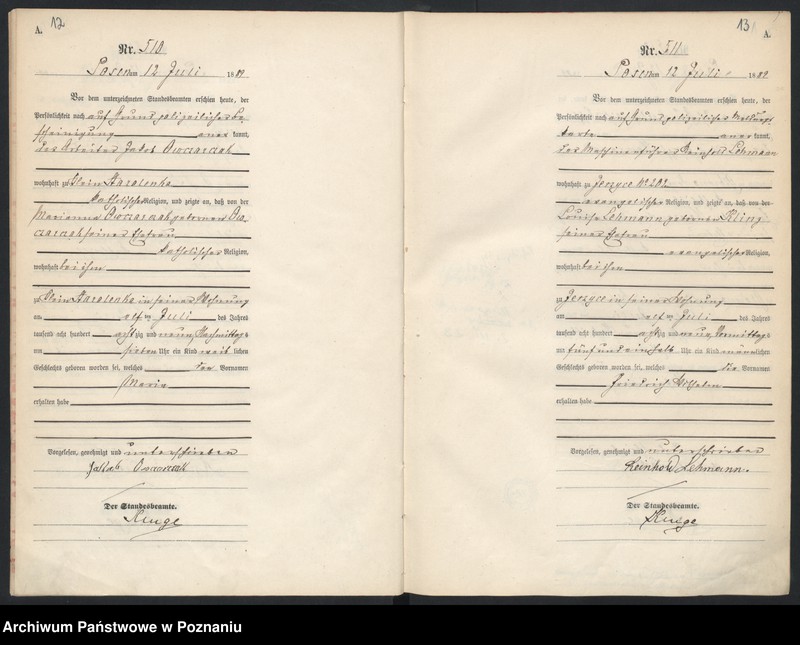 A. 12
Nr. 510
Posen am 12 Juli 1889
Vor dem unterzeichneten Standesbeamten erschien heute, der
Persönlichkeit nach auf Grund polizeilicher Be-
scheinigung anerkannt,
der Arbeiter Jakob Owczarczak
wohnhaft zu Klein Starolenka
katholischer Religion, und zeigte an, daß von der
Marianna Owczarczak geborenen
seiner Ehefrau
katholischer Religion,
wohnhaft bei ihm
zu Klein Starolenka in seiner Wohnung
am elften Juli des Jahres
tausend acht hundert achtzig und neun Nachmittags
um sieben Uhr ein Kind weiblichen
Geschlechts geboren worden sei, welches den Vornamen
Maria
erhalten habe
Vorgelesen, genehmigt und unterschrieben
Jakob Owczarczak
Der Standesbeamte.
13 A.
Nr. 511
Posen am 12 Juli 1889
Vor dem unterzeichneten Standesbeamten erschien heute, der
Persönlichkeit nach auf Grund polizeilicher Meldungs
karte anerkannt,
der Maschinenführer Reinhold Lehmann
wohnhaft zu Jerzyce No 202
evangelischer Religion, und zeigte an, daß von der
Louise Lehmann geborenen Kling
seiner Ehefrau
evangelischer Religion,
wohnhaft bei ihm
zu Jerzyce in seiner Wohnung
am elften Juli des Jahres
tausend acht hundert achtzig und neun Vormittags
um fünf und ein halb Uhr ein Kind männlichen
Geschlechts geboren worden sei, welches die Vornamen
Friedrich Wilhelm
erhalten habe
Vorgelesen, genehmigt und unterschrieben
Reinhold Lehmann.
Der Standesbeamte.
Archiwum Państwowe w Poznaniu